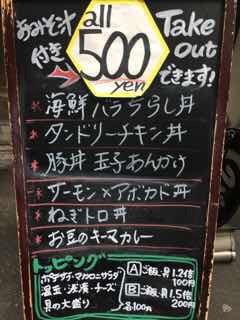 おみそ汁付き
all 500 yen
Take Out できます!
海鮮バラちらし丼
タンドリーチキン丼
豚丼 玉子あんかけ
サーモン×アボカド丼
ねぎトロ丼
お豆のキーマカレー
トッピング
ポテサラ・マカロニサラダ
温玉・浅漬・チーズ
具の大盛り 各100円
A ご飯、具1.2倍 100円
B ご飯、具1.5倍 200円